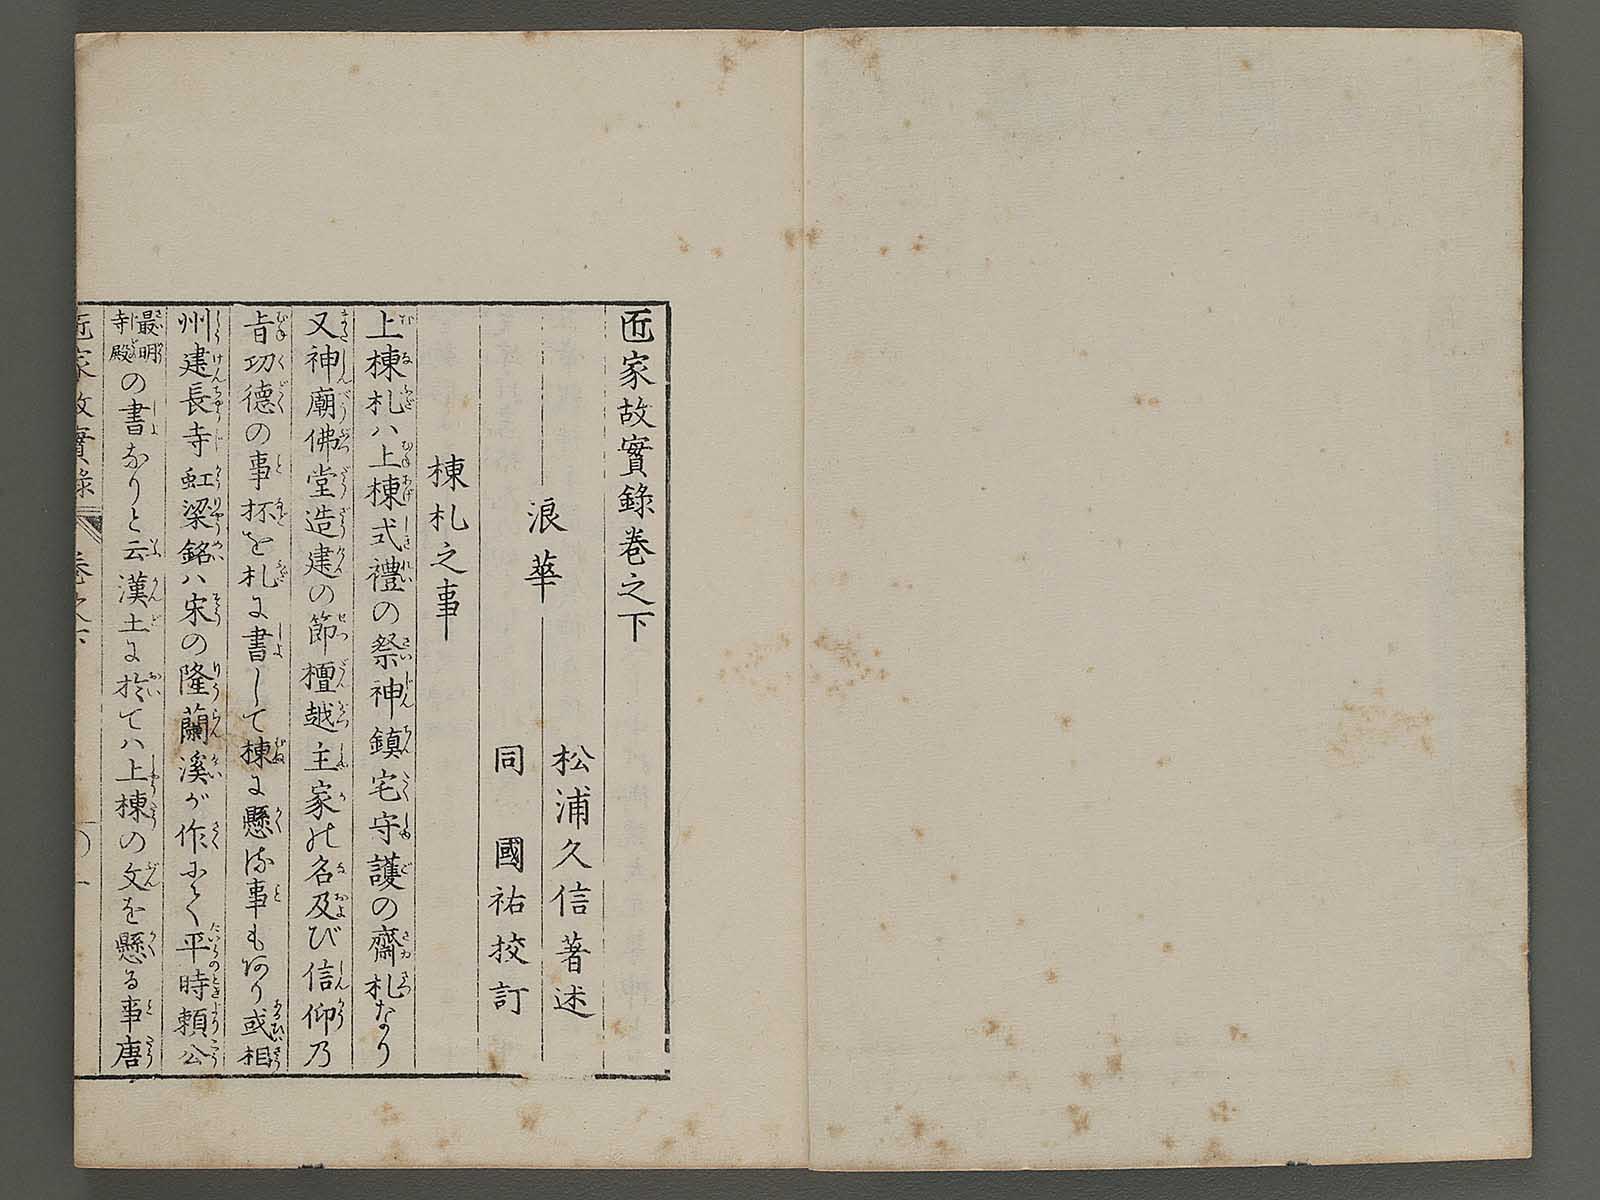 匠家故實錄巻之下
浪華 松浦久信著述
同 國祐挍訂
棟札之事
上棟札ハ上棟式禮の祭神鎮宅守護の齋札なり
又神廟佛堂造建の節檀越主家の名及び信仰乃
旨功德の事抔を札に書して棟に懸る事もあり或相
州建長寺虹梁銘ハ宋の隆蘭溪が作にて平時頼公
最明寺殿の書なりと云漢土に於てハ上棟の文を懸る事唐
匠家故實錄 巻之下 一